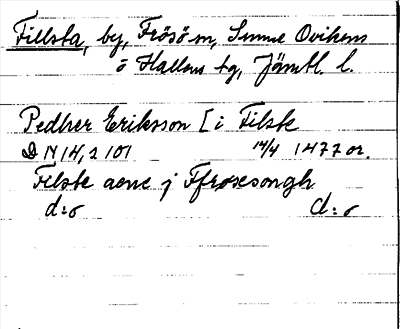 Fillsta, by, Frösö sn, Sunne Ovikens
o Hallens tg, Jämtl. l.
Pedher Eriksson [ i Filste
D N 14, s 101 14/4 1477 or.
Filste aene j Ffrøsesongh
d:o d:o